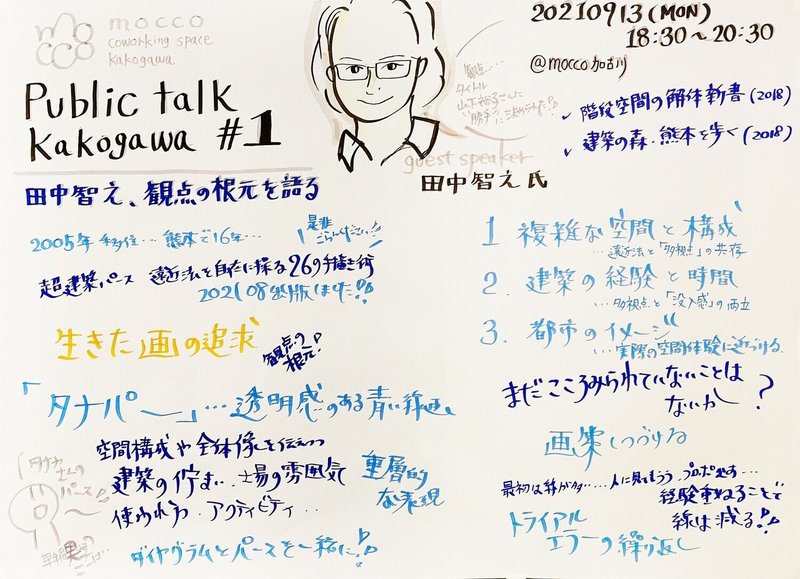 mocco
coworking space
kakogawa
20210913(MON)
18:30〜20:30
@mocco加古川
Public talk
Kakogawa #1
観点....
タイトル
山下裕子さんに
"勝手"に決められました!?
guest speaker
田中智之氏
✓ 階段空間の解体新書(2018)
✓ 建築の森・熊本を歩く(2018)
田中智之、観点の根元を語る
2005年 移住... 熊本で16年...
是非
ごらんください!!
超建築パース 遠近法を自在に操る26の手描き術
202108出版しました!!
生きた画の追求
観点の
根元!
「タナパー」...透明感のある青い線画。
空間構成や全体像を伝えつつ
建築の佇まい.. 場の雰囲気
使われ方. アクティビティ..
重層的
な表現
タナカ
さんの
パース
ダイヤグラムとパースを一緒に!!
1 複雑な空間と構成
...遠近法と「多視点」の共存
2. 建築の経験と時間
...多視点と「没入感」の両立
3. 都市のイメージ
...実際の空間体験に近づける
まだこころみられていないことは
ないか?
画策しつづける
最初は線が多い......人に見てもらう、プロポーザル...
経験重ねることで
線は減る!!
トライアル
エラーの繰り返し